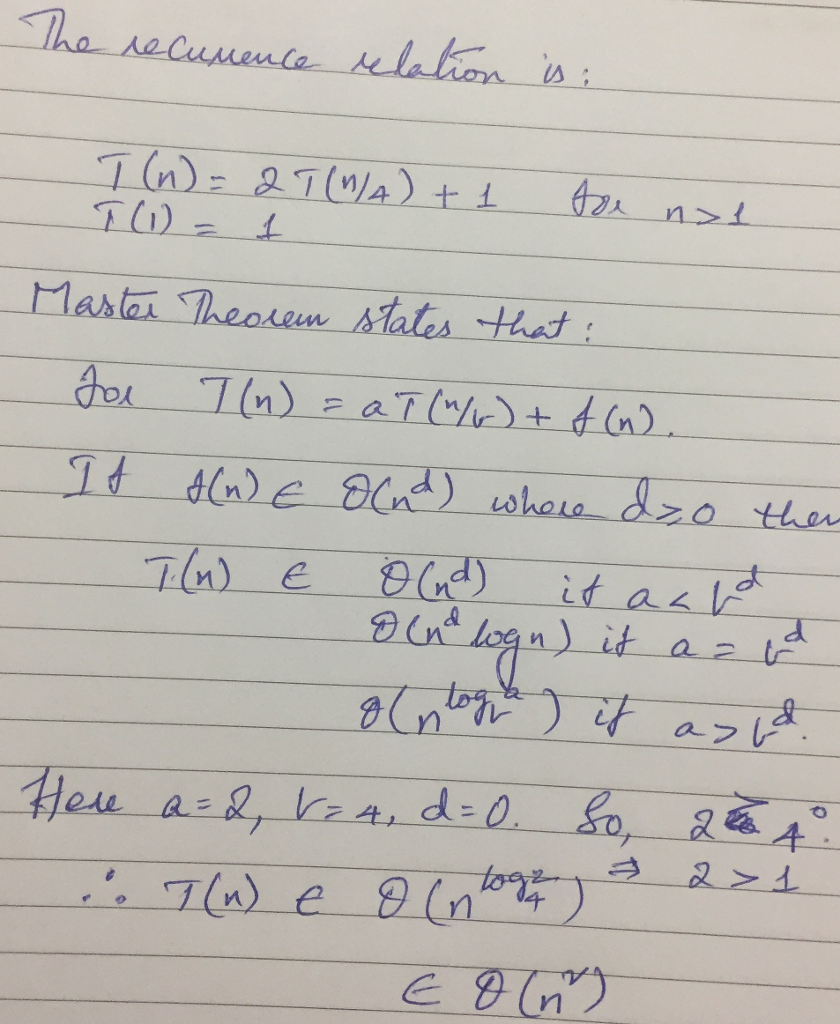 The recurrence relation is:
T(n) = 2T(n/4) + 1 for n>1
T(1) = 1
Master Theorem states that:
for T(n) = aT(n/b) + f(n).
If f(n) ∈ Θ(n^d) where d≥0 then
T(n) ∈ Θ(n^d) if a < b^d
Θ(n^d log n) if a = b^d
Θ(n^{log_b a}) if a > b^d.
Here a=2, b=4, d=0. So, 2 > 4^0.
∴ T(n) ∈ Θ(n^{log_4 2}) ⇒ 2 > 1
∈ Θ(n^2)